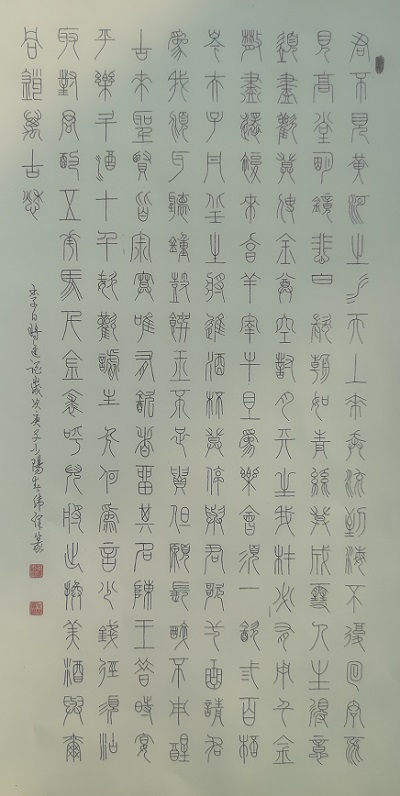 君不見黃河之水天上來奔流到海不復回君不
見高堂明鏡悲白髮朝如青絲暮成雪人生得意
須盡歡莫使金尊空對月天生我材必有用千金
散盡還復來烹羊宰牛且為樂會須一飲三百杯
岑夫子丹丘生將進酒杯莫停與君歌一曲請君
為我傾耳聽鐘鼓饌玉不足貴但願長醉不用醒
古來聖賢皆寂寞唯有飲者留其名陳王昔時宴
平樂斗酒十千恣歡謔主人何為言少錢徑須沽
取對君酌五花馬千金裘呼兒將出換美酒與爾
同銷萬古愁
李白將進酒歲次庚子小陽春